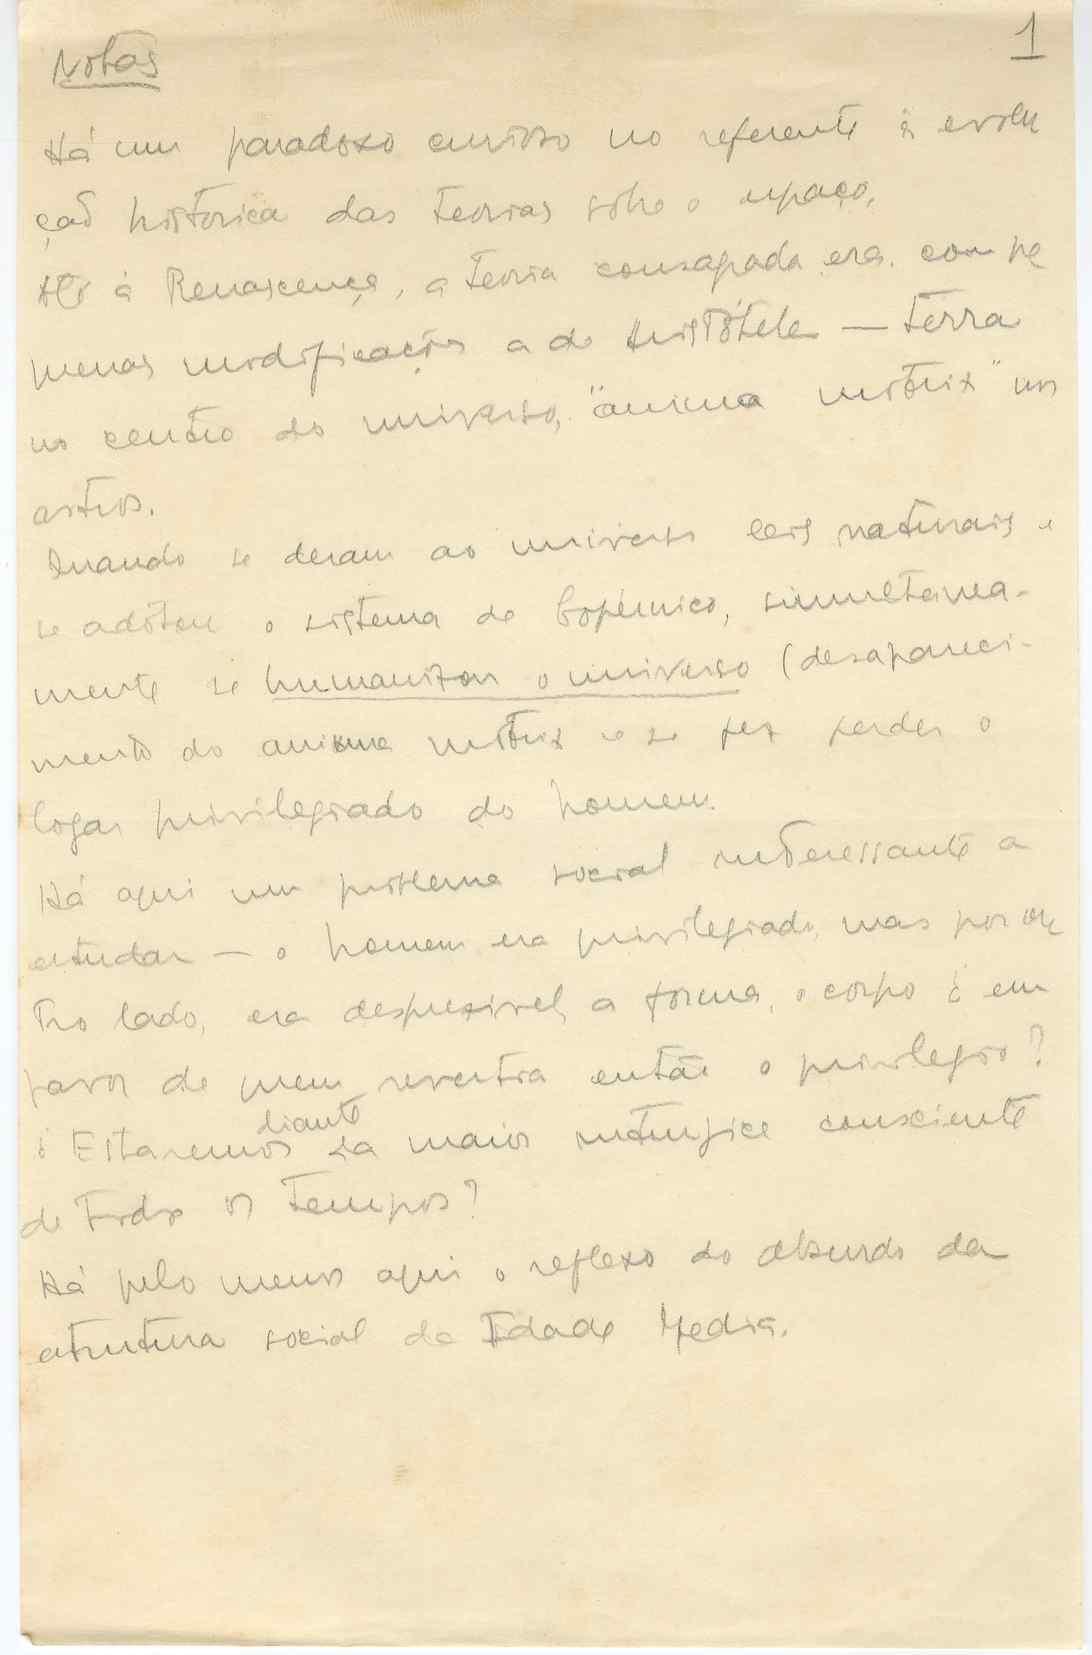 Notas
1
Há um paradoxo curioso no referente à evolu
ção historica das teorias sobre o espaço.
Até à Renascença, a teoria consagrada era, com pe
quenas modificações a de Aristóteles — Terra
no centro do universo, "anima motrix" nos
astros.
Quando se deram ao universo leis naturais e
se adotou o sistema de Copérnico, simultanea-
mente se humanizou o universo (desapareci-
mento do anima motrix e se fez perder o
logar privilegiado do homem.
Há aqui um problema social interessante a
estudar — o homem era privilegiado, mas por ou
tro lado, era desprezivel, a forma, o corpo é em
favor de quem revertia então o privilegio?
é Estaremos da maior intrujice consciente
diante
de todos os tempos?
Há pelo menos aqui o reflexo do absurdo da
estrutura social da Idade Media.